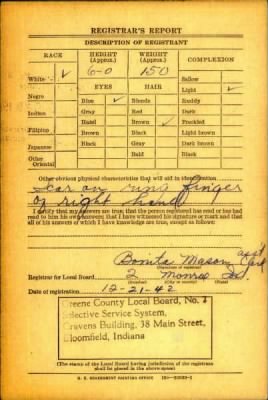 REGISTRAR'S REPORT
DESCRIPTION OF REGISTRANT
RACE HEIGHT (Approx.) WEIGHT (Approx.) COMPLEXION
White ✓ 6-0 150 Sallow
EYES HAIR Light ✓
Negro Blue ✓ Blonde Ruddy
Indian Gray Red Dark
Hazel Brown ✓ Freckled
Filipino Brown Black Light brown
Japanese Black Gray Dark brown
Other Bald Black
Oriental
Other obvious physical characteristics that will aid in identification
Scar on ring finger
of right hand
I certify that my answers are true; that the person registered has read or has had
read to him his own answers; that I have witnessed his signature or mark and that
all of his answers of which I have knowledge are true, except as follows:
Bonita Mason
(Signature of registrar)
Registrar for Local Board 2 Monroe
Date of registration 12-21-42
Greene County Local Board, No. 2
Selective Service System,
Cravens Building, 38 Main Street,
Bloomfield, Indiana
(The stamp of the Local Board having jurisdiction of the registrant
shall be placed in the above space)
U. S. GOVERNMENT PRINTING OFFICE